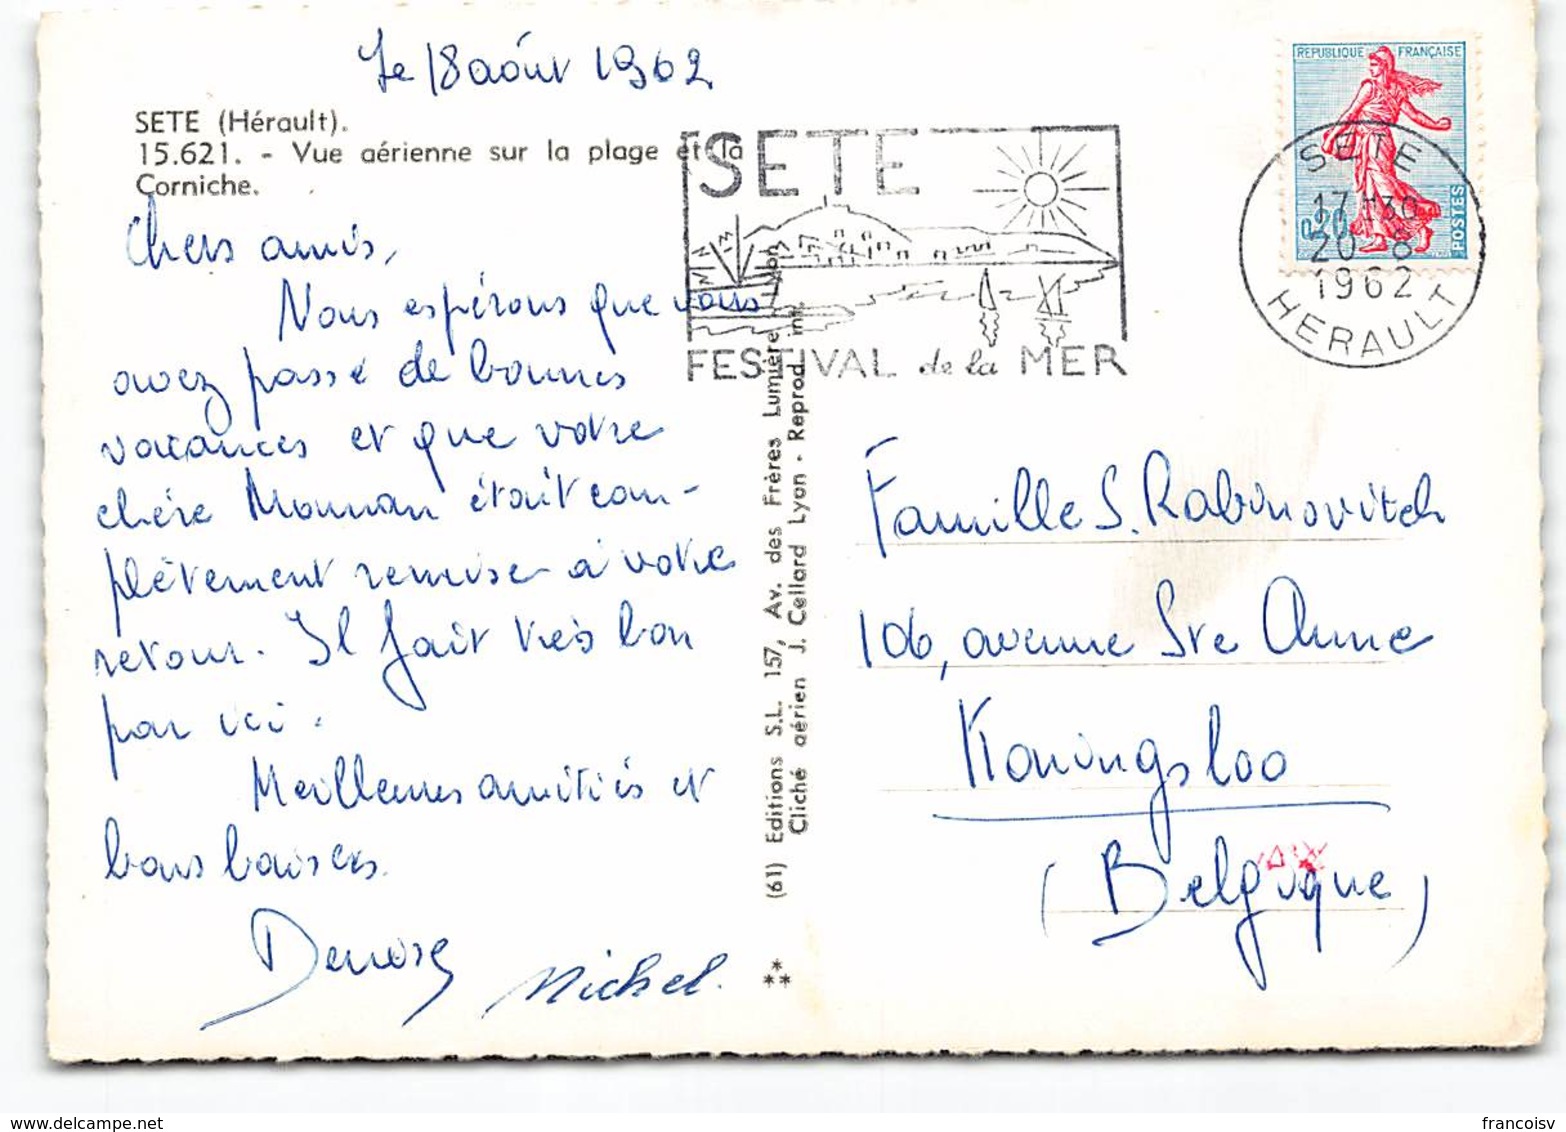 Le 18 août 1962
SETE (Hérault).
15.621. - Vue aérienne sur la plage et la
Corniche.
Chers amis,
Nous espérons que vous
avez passé de bonnes
vacances et que votre
chère Maman était com-
plètement remise à votre
retour. Il fait très bon
par ici.
Meilleures amitiés et
bons baisers.
Denise Michel.
(61) Editions S.L. 157, Av. des Frères Lumière Lyon
Cliché aérien J. Cellard Lyon - Reprod. int.
SETE
FESTIVAL de la MER
REPUBLIQUE FRANÇAISE
0,20
POSTES
SETE
17H30
20-8
1962
HERAULT
Famille S. Rabinovitch
106, avenue Ste Anne
Koningsloo
(Belgique)
francoisv
www.delcampe.net